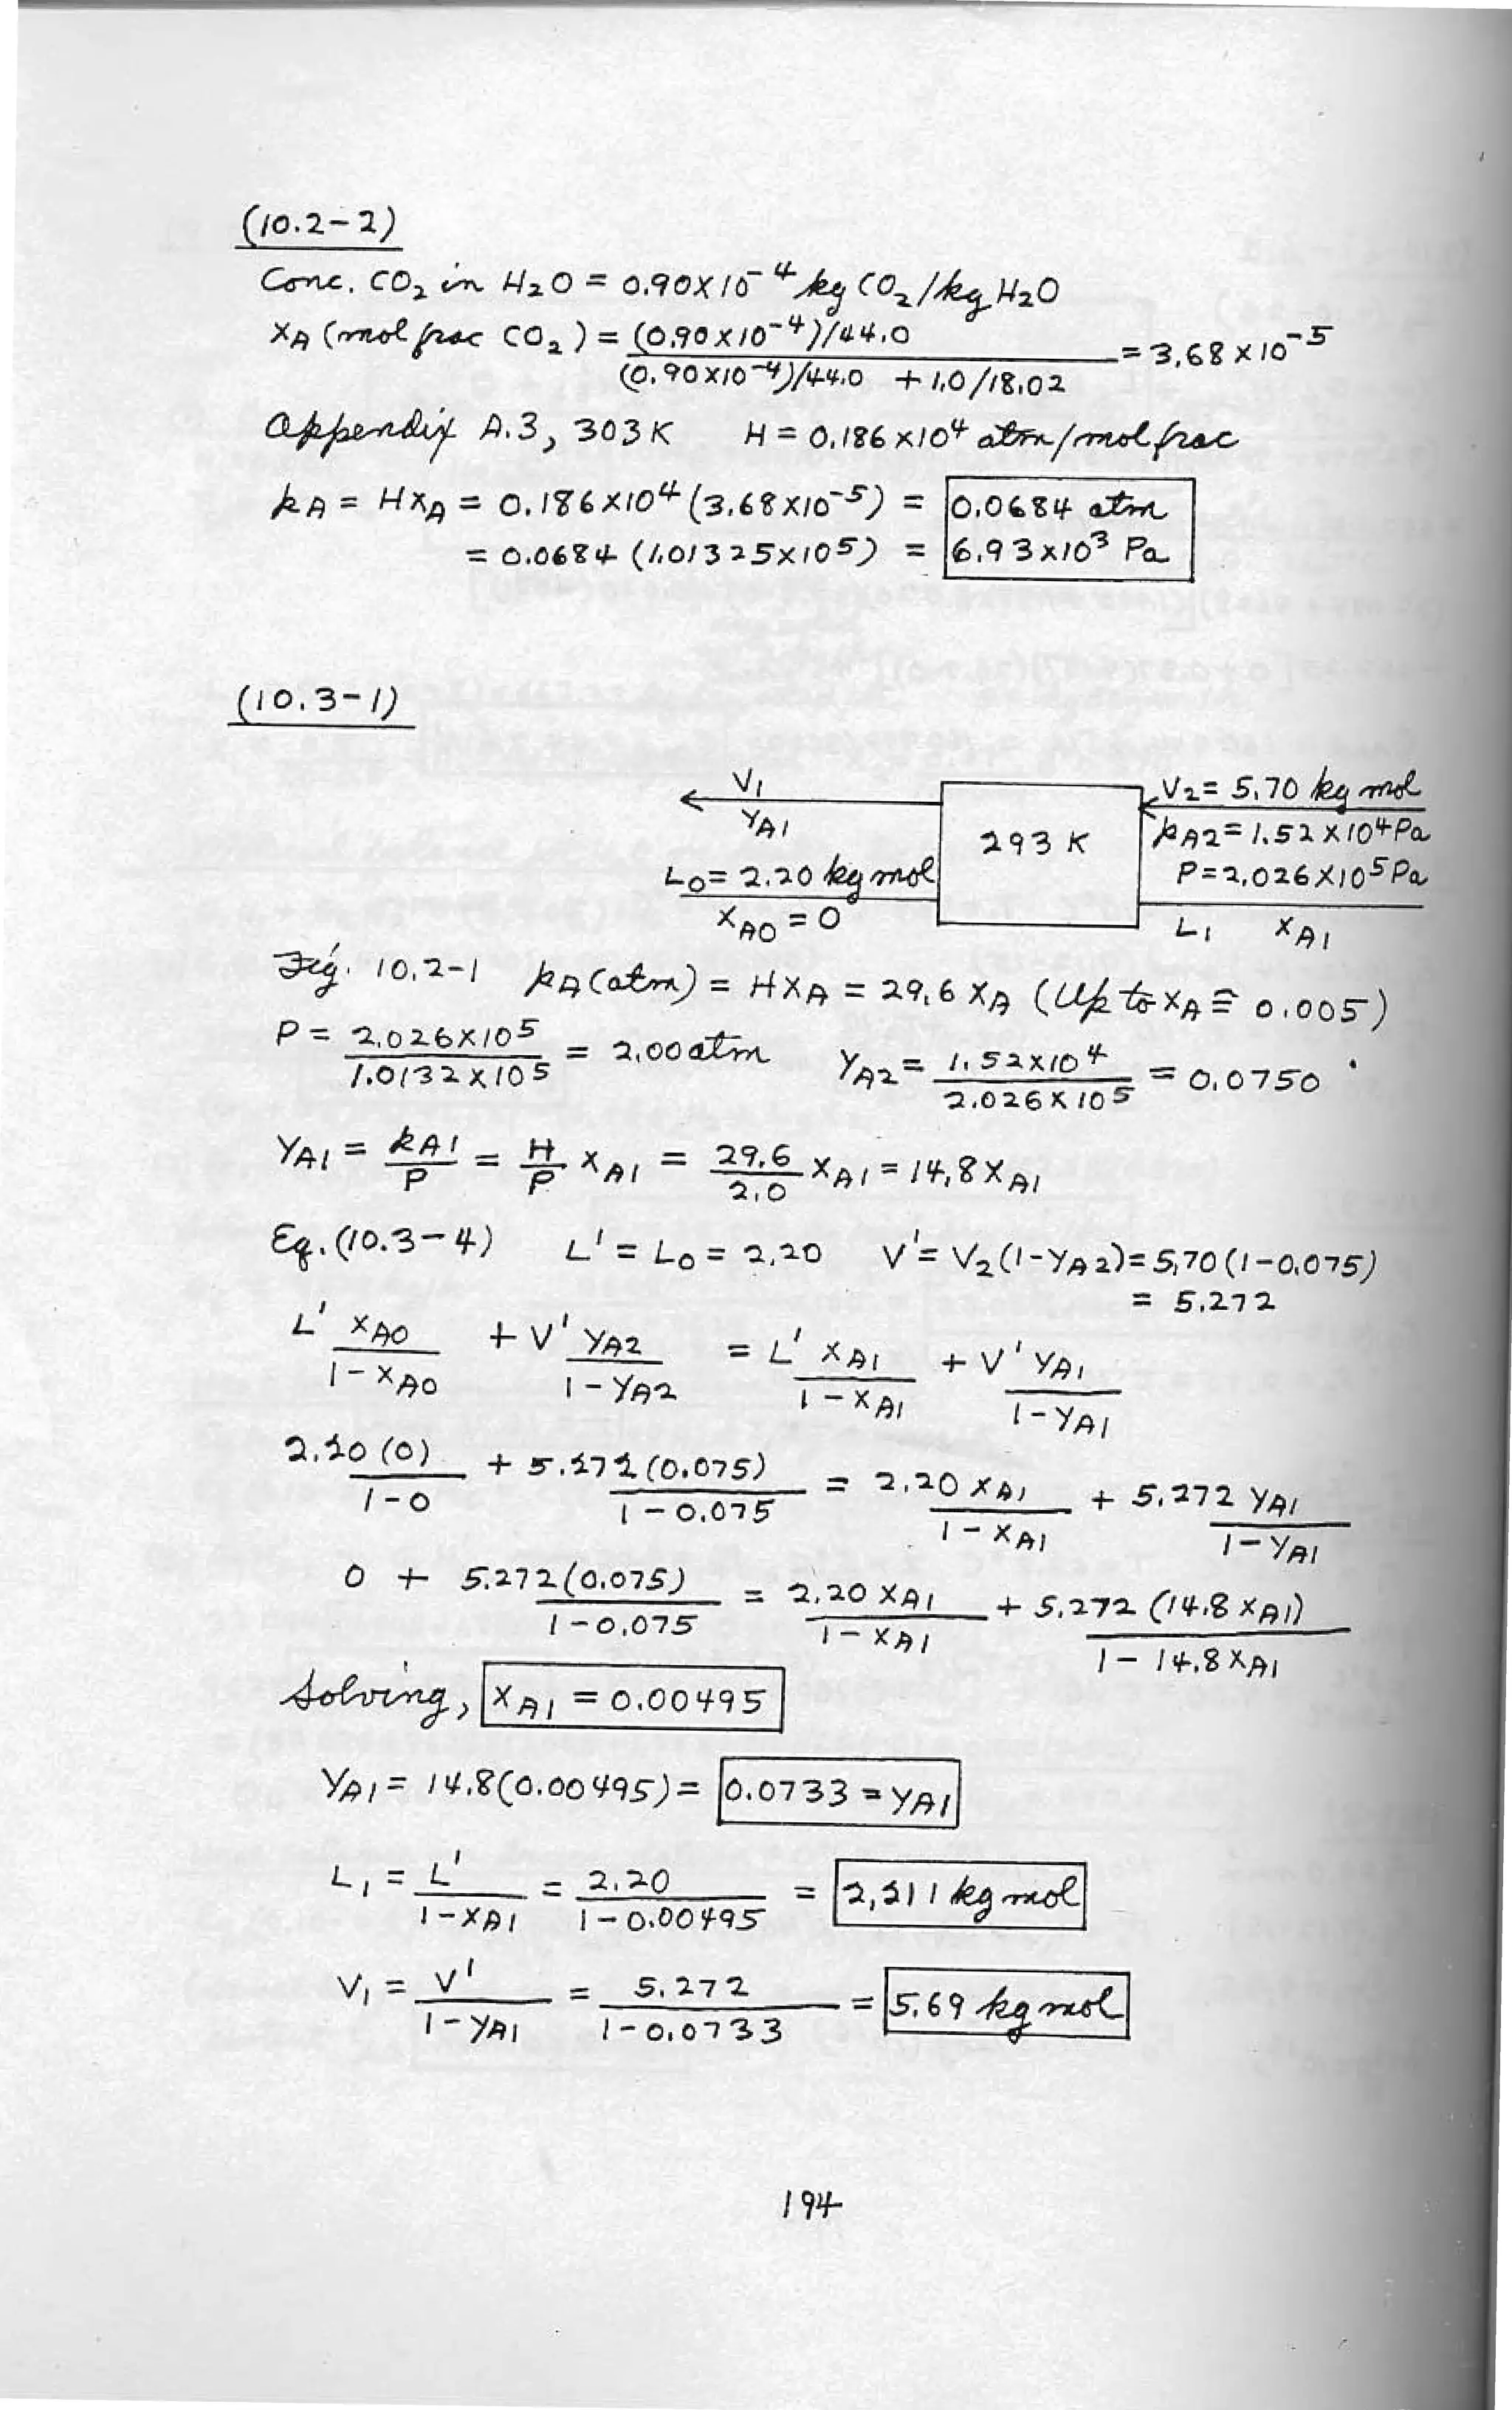 (10.2-2)
Conc. CO₂ in H₂O = 0.90×10⁻⁴ kg CO₂/kg H₂O
x_A (mol frac CO₂) = (0.90×10⁻⁴)/44.0 / ((0.90×10⁻⁴)/44.0 + 1.0/18.02) = 3.68×10⁻⁵
Appendix A.3, 303 K H = 0.186×10⁴ atm/mol frac
p_A = Hx_A = 0.186×10⁴ (3.68×10⁻⁵) = 0.0684 atm
= 0.0684 (1.01325×10⁵) = 6.93×10³ Pa
(10.3-1)
V₁
y_A1
L₀ = 2.20 kg mol
x_A0 = 0
293 K
V₂ = 5.70 kg mol
p_A2 = 1.52×10⁴ Pa
P = 2.026×10⁵ Pa
L₁ x_A1
Fig. 10.2-1 p_A (atm) = Hx_A = 29.6 x_A (Up to x_A ≅ 0.005)
P = 2.026×10⁵ / 1.0132×10⁵ = 2.00 atm y_A2 = 1.52×10⁴ / 2.026×10⁵ = 0.0750
y_A1 = p_A1/P = H/P x_A1 = 29.6/2.0 x_A1 = 14.8 x_A1
Eq. (10.3-4) L' = L₀ = 2.20 V' = V₂(1-y_A2) = 5.70 (1-0.075)
= 5.272
L' x_A0/(1-x_A0) + V' y_A2/(1-y_A2) = L' x_A1/(1-x_A1) + V' y_A1/(1-y_A1)
2.20 (0)/(1-0) + 5.272 (0.075)/(1-0.075) = 2.20 x_A1/(1-x_A1) + 5.272 y_A1/(1-y_A1)
0 + 5.272 (0.075)/(1-0.075) = 2.20 x_A1/(1-x_A1) + 5.272 (14.8 x_A1)/(1-14.8 x_A1)
Solving, x_A1 = 0.00495
y_A1 = 14.8(0.00495) = 0.0733 = y_A1
L₁ = L'/(1-x_A1) = 2.20/(1-0.00495) = 2.211 kg mol
V₁ = V'/(1-y_A1) = 5.272/(1-0.0733) = 5.69 kg mol
194